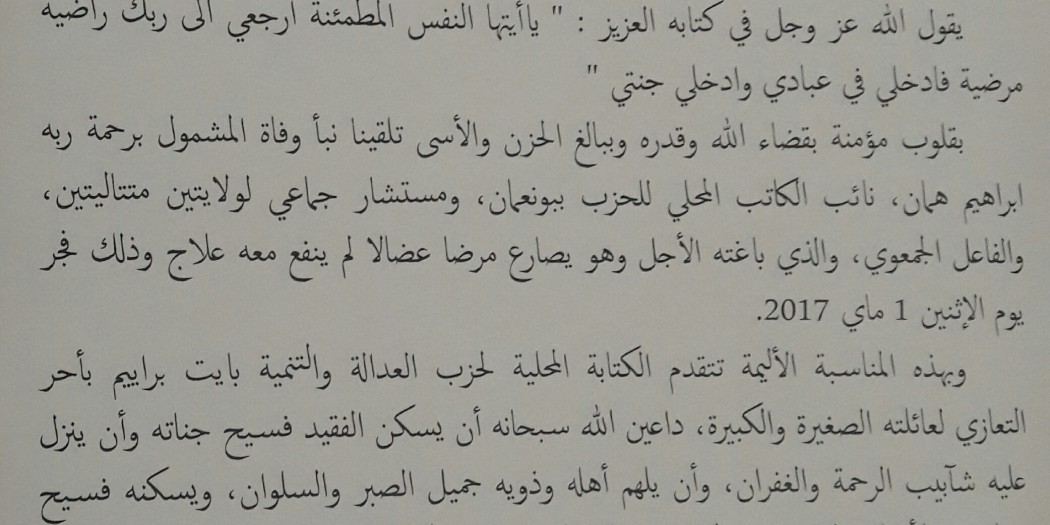 يقول الله عز وجل في كتابه العزيز : " ياأيتها النفس المطمئنة ارجعي الى ربك راضية
مرضية فادخلي في عبادي وادخلي جنتي "
بقلوب مؤمنة بقضاء الله وقدره وببالغ الحزن والأسى تلقينا نبأ وفاة المشمول برحمة ربه
ابراهيم همان، نائب الكاتب المحلي للحزب ببونعمان، ومستشار جماعي لولايتين متتاليتين،
والفاعل الجمعوي، والذي باغته الأجل وهو يصارع مرضا عضالا لم ينفع معه علاج وذلك فجر
يوم الإثنين 1 ماي 2017.
وبهذه المناسبة الأليمة تتقدم الكتابة المحلية لحزب العدالة والتنمية بايت براييم بأحر
التعازي لعائلته الصغيرة والكبيرة، داعين الله سبحانه أن يسكن الفقيد فسيح جناته وأن ينزل
عليه شآبيب الرحمة والغفران، وأن يلهم أهله وذويه جميل الصبر والسلوان، ويسكنه فسيح